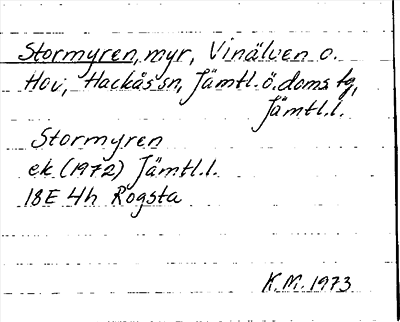 Stormyren, myr, Vinälven o.
Hov, Hackås sn, Jämtl. ö. doms. tg,
Jämtl.l.
Stormyren
ek (1972) Jämtl.l.
18E 4h Rogsta
K.M. 1973